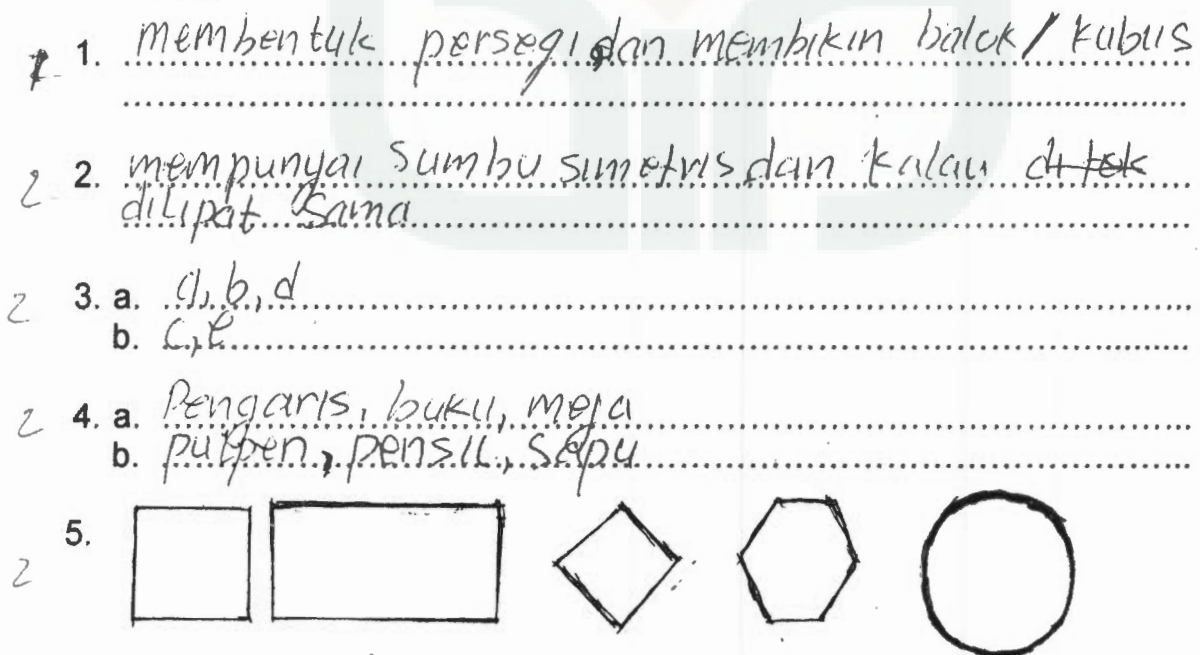 1 1. membentuk persegi, dan membikin balok / kubus
2 2. mempunyai Sumbu simetris dan kalau
dilipat sama
2 3. a. a, b, d
b. c, e
2 4. a. Pengaris, buku, meja
b. pulpen, pensil, sapu
2 5.